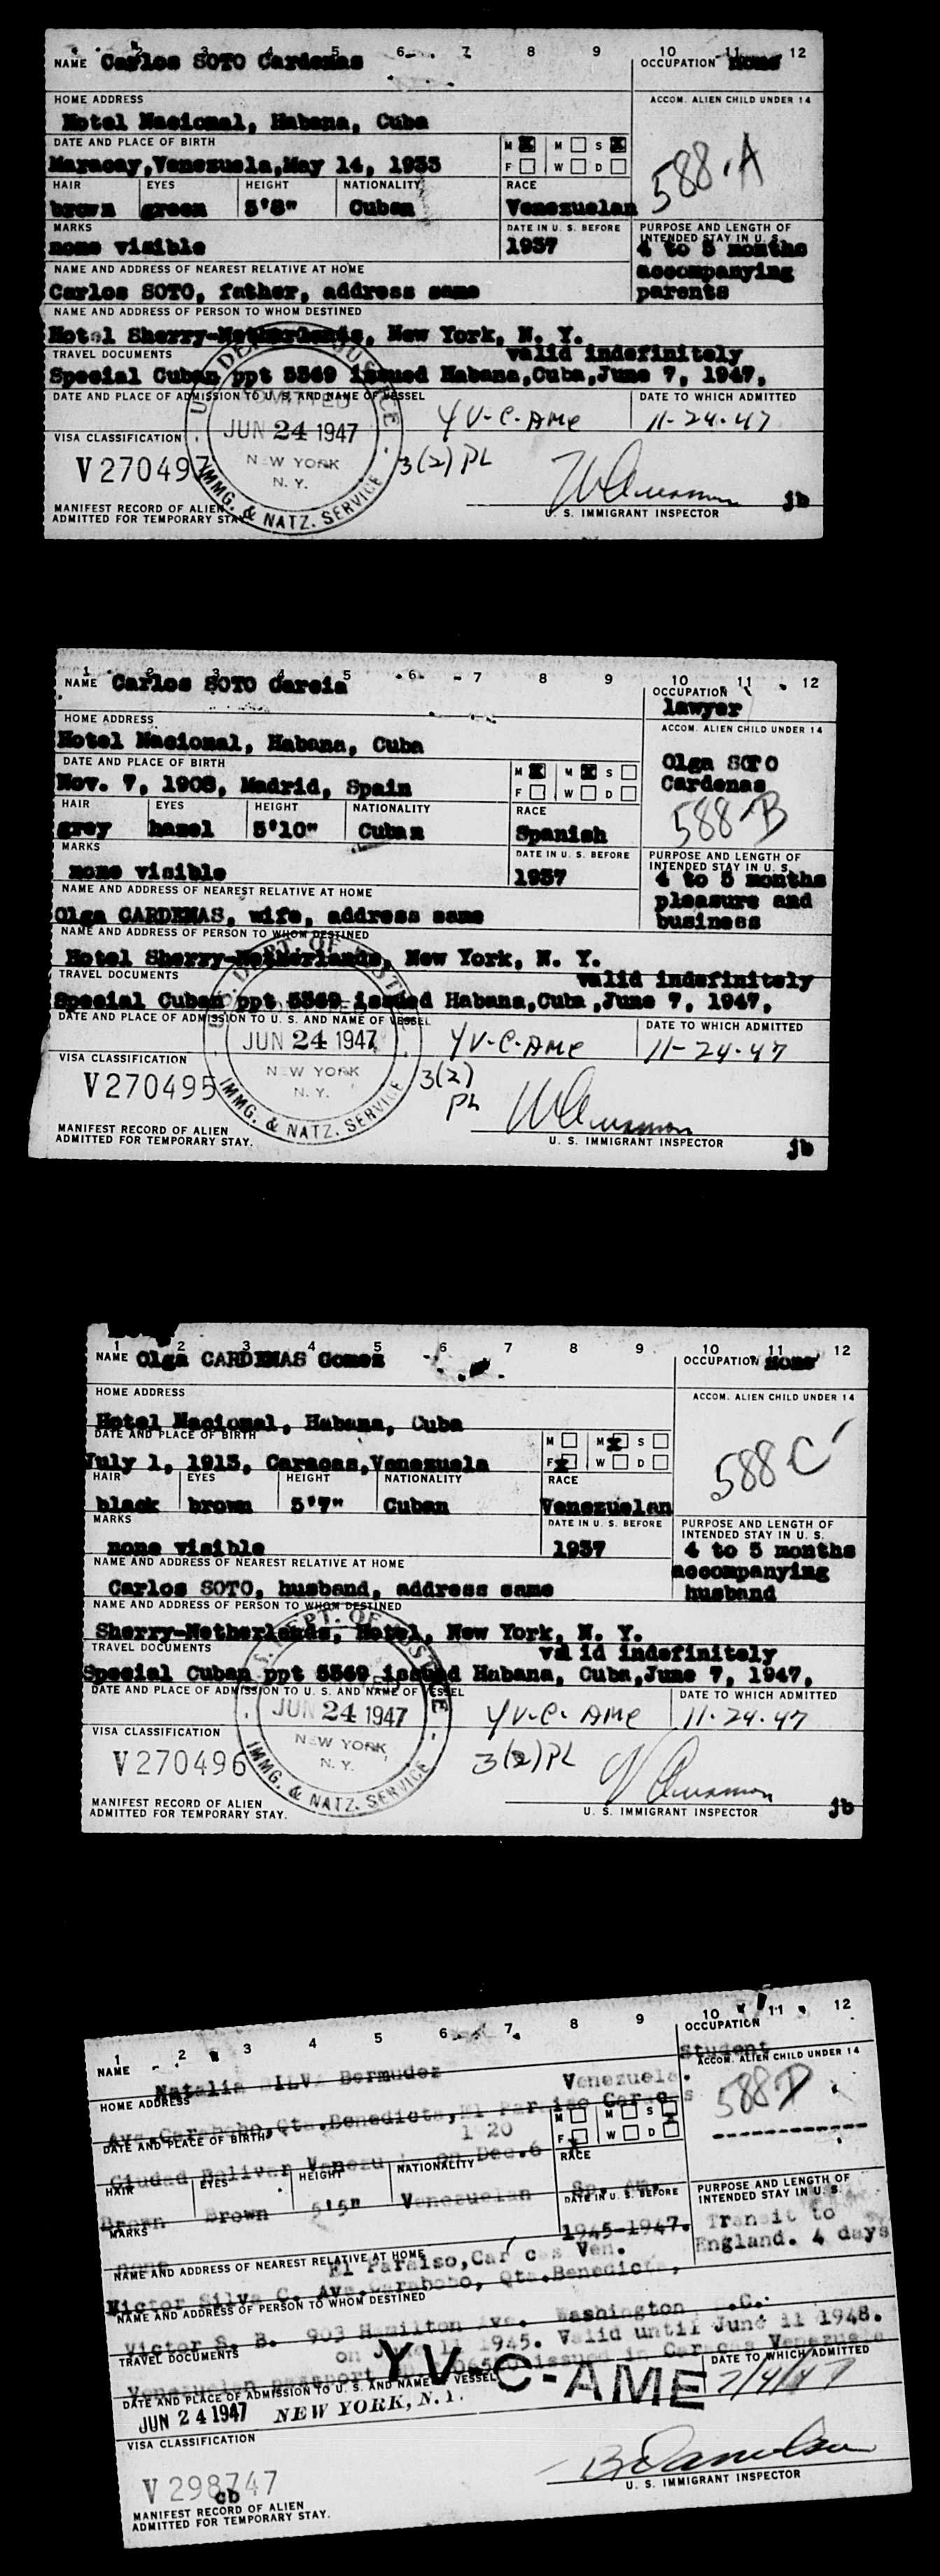 1 2 3 4 5 6 7 8 9 10 11 12
NAME Carlos SOTO Cardenas
OCCUPATION none
HOME ADDRESS
ACCOM. ALIEN CHILD UNDER 14
Hotel Nacional, Habana, Cuba
588-A
DATE AND PLACE OF BIRTH
M X M S X
F W D
Maracay, Venezuela, May 14, 1933
HAIR EYES HEIGHT NATIONALITY RACE
brown green 5'8" Cuban Venezuelan
MARKS DATE IN U. S. BEFORE PURPOSE AND LENGTH OF INTENDED STAY IN U. S.
none visible 1937 4 to 5 months
accompanying
parents
NAME AND ADDRESS OF NEAREST RELATIVE AT HOME
Carlos SOTO, father, address same
NAME AND ADDRESS OF PERSON TO WHOM DESTINED
Hotel Sherry-Netherlands, New York, N. Y.
TRAVEL DOCUMENTS valid indefinitely
Special Cuban ppt 5569 issued Habana, Cuba, June 7, 1947,
DATE AND PLACE OF ADMISSION TO U. S. AND NAME OF VESSEL DATE TO WHICH ADMITTED
ADMITTED
JUN 24 1947
NEW YORK
N. Y.
IMMG. & NATZ. SERVICE
YV-C-AME 11-24-47
VISA CLASSIFICATION
V270497 3(2) PL
MANIFEST RECORD OF ALIEN
ADMITTED FOR TEMPORARY STAY.
U. S. IMMIGRANT INSPECTOR
jb
1 2 3 4 5 6 7 8 9 10 11 12
NAME Carlos SOTO Garcia
OCCUPATION
lawyer
HOME ADDRESS
ACCOM. ALIEN CHILD UNDER 14
Hotel Nacional, Habana, Cuba
Olga SOTO
Cardenas
588-B
DATE AND PLACE OF BIRTH
M X M X S
F W D
Nov. 7, 1908, Madrid, Spain
HAIR EYES HEIGHT NATIONALITY RACE
grey hazel 5'10" Cuban Spanish
MARKS DATE IN U. S. BEFORE PURPOSE AND LENGTH OF INTENDED STAY IN U. S.
none visible 1937 4 to 5 months
pleasure and
business
NAME AND ADDRESS OF NEAREST RELATIVE AT HOME
Olga CARDENAS, wife, address same
NAME AND ADDRESS OF PERSON TO WHOM DESTINED
Hotel Sherry-Netherlands, New York, N. Y.
TRAVEL DOCUMENTS valid indefinitely
Special Cuban ppt 5569 issued Habana, Cuba, June 7, 1947,
DATE AND PLACE OF ADMISSION TO U. S. AND NAME OF VESSEL DATE TO WHICH ADMITTED
JUN 24 1947
NEW YORK
N. Y.
IMMG. & NATZ. SERVICE
YV-C-AME 11-24-47
VISA CLASSIFICATION
V270495 3(2)
PL
MANIFEST RECORD OF ALIEN
ADMITTED FOR TEMPORARY STAY.
U. S. IMMIGRANT INSPECTOR
jb
1 2 3 4 5 6 7 8 9 10 11 12
NAME Olga CARDENAS Gomez
OCCUPATION none
HOME ADDRESS
ACCOM. ALIEN CHILD UNDER 14
Hotel Nacional, Habana, Cuba
588 C
DATE AND PLACE OF BIRTH
M M X S
F X W D
July 1, 1913, Caracas, Venezuela
HAIR EYES HEIGHT NATIONALITY RACE
black brown 5'7" Cuban Venezuelan
MARKS DATE IN U. S. BEFORE PURPOSE AND LENGTH OF INTENDED STAY IN U. S.
none visible 1937 4 to 5 months
accompanying
husband
NAME AND ADDRESS OF NEAREST RELATIVE AT HOME
Carlos SOTO, husband, address same
NAME AND ADDRESS OF PERSON TO WHOM DESTINED
Sherry-Netherlands, Hotel, New York, N. Y.
TRAVEL DOCUMENTS va id indefinitely
Special Cuban ppt 5569 issued Habana, Cuba, June 7, 1947,
DATE AND PLACE OF ADMISSION TO U. S. AND NAME OF VESSEL DATE TO WHICH ADMITTED
JUN 24 1947
NEW YORK
N. Y.
IMMG. & NATZ. SERVICE
YV-C-AME 11-24-47
VISA CLASSIFICATION
V270496 3(2) PL
MANIFEST RECORD OF ALIEN
ADMITTED FOR TEMPORARY STAY.
U. S. IMMIGRANT INSPECTOR
jb
1 2 3 4 5 6 7 8 9 10 11 12
NAME OCCUPATION
Natalia SILVA Bermudez Student
HOME ADDRESS Venezuela.
ACCOM. ALIEN CHILD UNDER 14
Ava. Carabobo, Qta. Benedicta, El Paraiso Caracas
588 D
DATE AND PLACE OF BIRTH 1920
M M S X
F X W D
Ciudad Bolivar Venezu on Dec. 6
HAIR EYES HEIGHT NATIONALITY RACE
Brown Brown 5'5" Venezuelan Sp. Am.
MARKS DATE IN U. S. BEFORE PURPOSE AND LENGTH OF INTENDED STAY IN U. S.
none 1945-1947. Transit to
England. 4 days
NAME AND ADDRESS OF NEAREST RELATIVE AT HOME El Paraiso, Car c s Ven.
Victor Silva C. Ava. Carabobo, Qta. Benedicta,
NAME AND ADDRESS OF PERSON TO WHOM DESTINED
Victor S. B. 903 Hamilton Ave. Washington .C.
TRAVEL DOCUMENTS on 1945. Valid until June 11 1948.
Venezuelan passport issued in Caracas Venezuela
DATE AND PLACE OF ADMISSION TO U. S. AND NAME OF VESSEL DATE TO WHICH ADMITTED
YV-C-AME
JUN 24 1947 NEW YORK, N. Y. 7/4/47
VISA CLASSIFICATION
V 298747
cb
MANIFEST RECORD OF ALIEN
ADMITTED FOR TEMPORARY STAY.
U. S. IMMIGRANT INSPECTOR